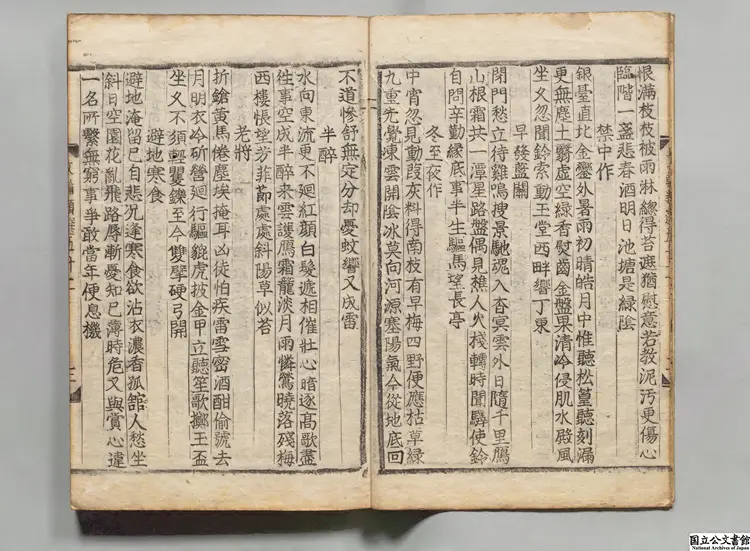 恨滿枝枝被雨淋總得苔遮猶慰意若教泥污更傷心
臨階一盞悲春酒明日池塘是綠陰
禁中作
銀臺直北金鑾外暑雨初晴皓月中惟聽松篁聽刻漏
更無塵土翳虛空綠香熨齒金盤果清冷侵肌水殿風
坐久忽聞鈴索動玉堂西畔響丁東
早發藍關
閉門愁立待雞鳴搜景馳魂入杳冥雲外日隨千里鴈
山根霜共一潭星路盤偶見樵人火棧轉時聞驛使鈴
自問辛勤緣底事半生驅馬望長亭
冬至夜作
中宵忽見動葭灰料得南枝有早梅四野便應枯草綠
九重先覺凍雲開陰冰莫向河源塞陽氣今從地底回
不道慘舒無定分却憂蚊響又成雷
半醉
水向東流更不廻紅顏白髮遞相催壯心暗逐高歌盡
往事空成半醉來雲護鴈霜籠淡月雨憐鶯曉落殘梅
西樓悵望芳菲節處處斜陽草似苔
老將
折鎗黃馬倦塵埃掩耳凶徒怕疾雷雪密酒酣偷號去
月明衣冷斫營廻行驅貔虎披金甲立聽笙歌擲玉盃
坐久不須輕矍鑠至今雙擘硬弓開
避地寒食
避地淹留已自悲況逢寒食欲沾衣濃香孤館人愁坐
斜日空園花亂飛路辱漸憂知己薄時危又與賞心違
一名所繫無窮事爭敢當年便息機
国立公文書館
National Archives of Japan